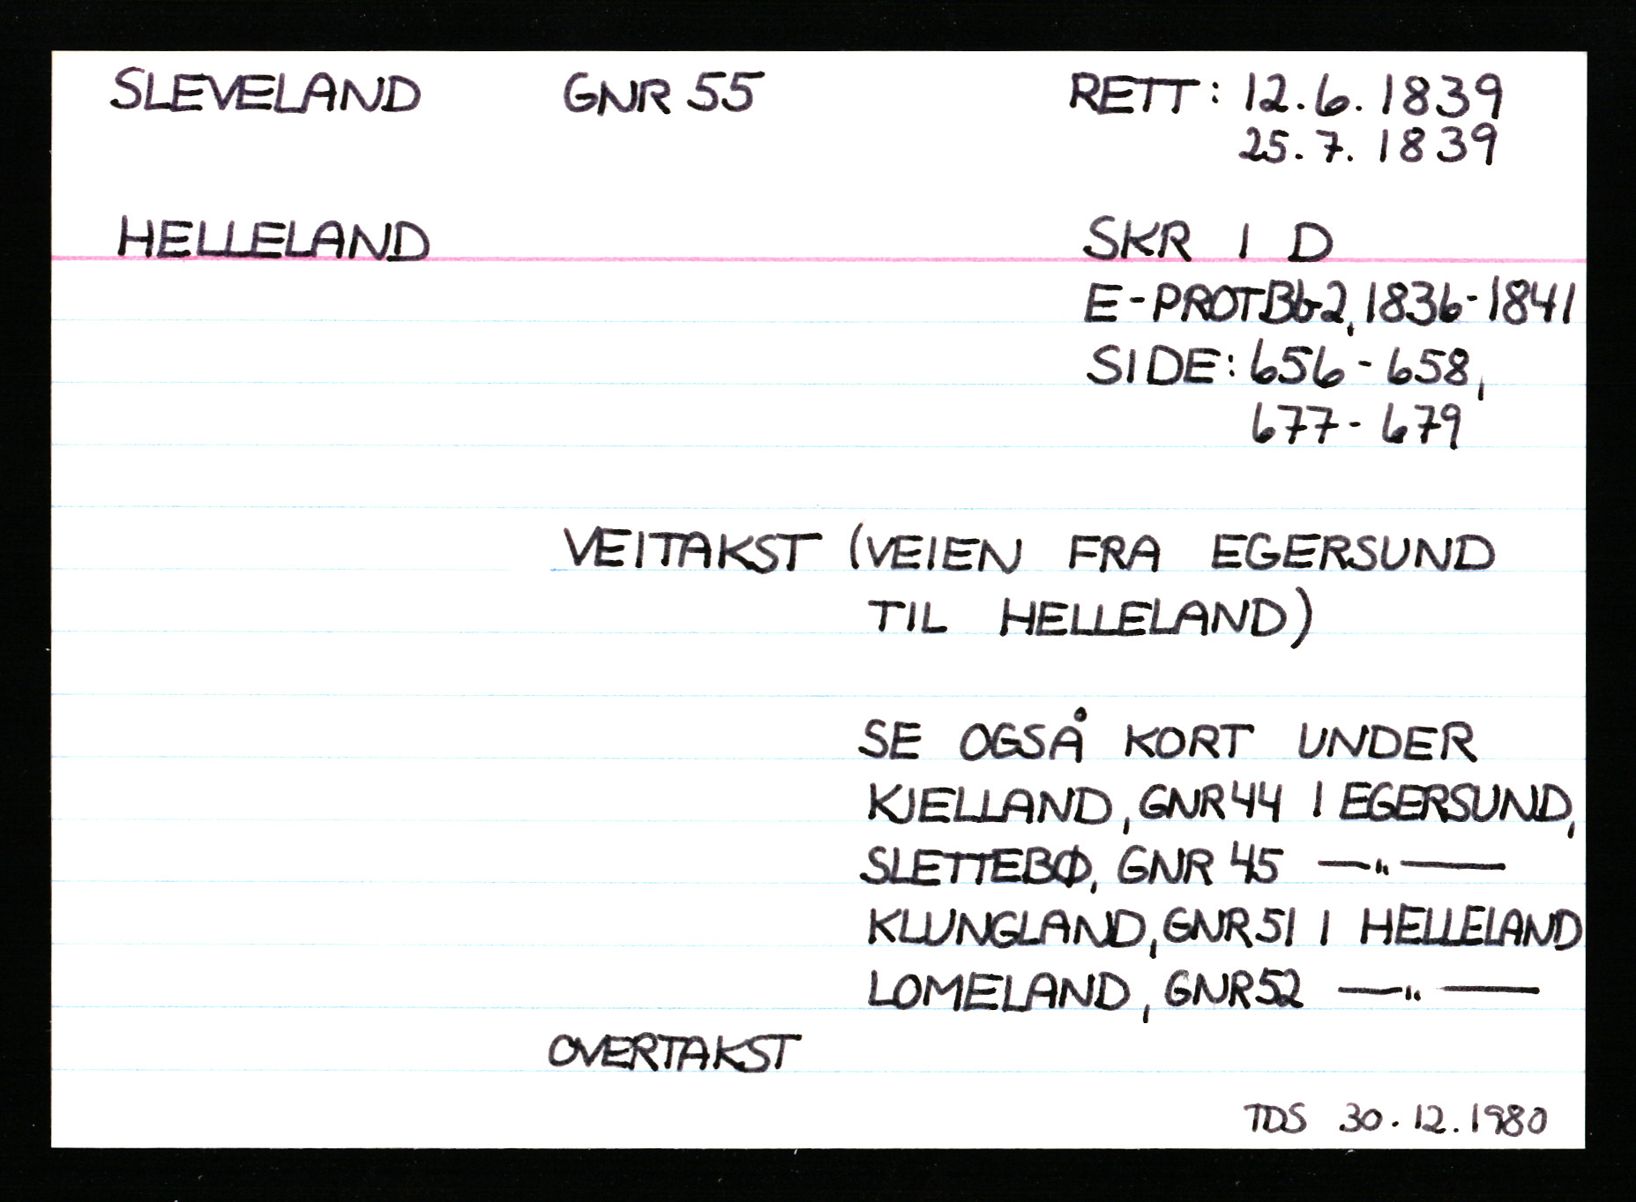 SLEVELAND GNR 55 RETT: 12.6.1839
25.7.1839
HELLELAND SKR I D
E-PROT Bb2, 1836-1841
SIDE: 656-658,
677-679
VEITAKST (VEIEN FRA EGERSUND
TIL HELLELAND)
SE OGSÅ KORT UNDER
KJELLAND, GNR 44 I EGERSUND,
SLETTEBØ, GNR 45 —"—
KLUNGLAND, GNR 51 I HELLELAND
LOMELAND, GNR 52 —"—
OVERTAKST
TDS 30.12.1980